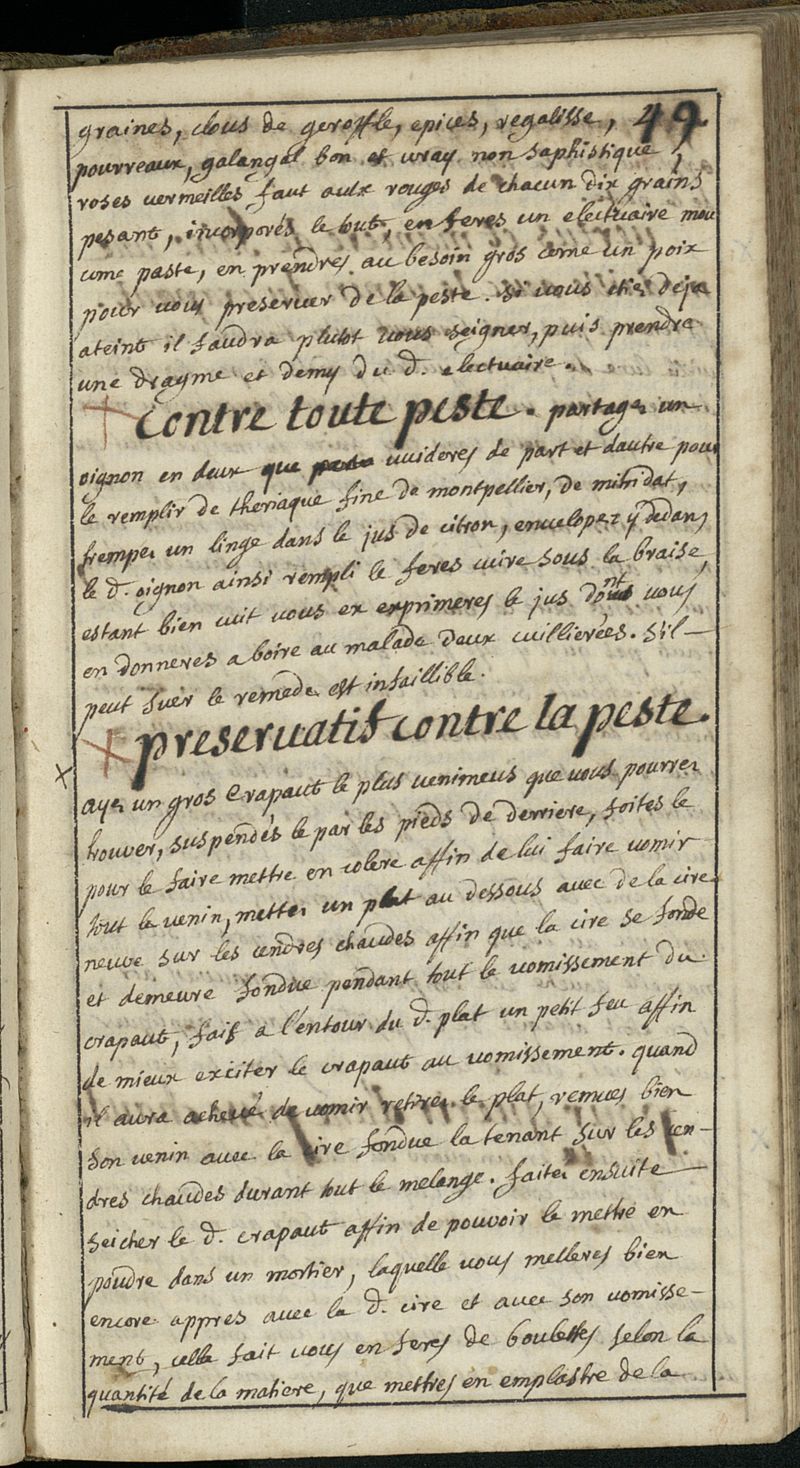 graines, clous de geroffle, epices, regalisse, 49
pourreaux, galangal bon et vray non saphistique,
roses vermeilles faut aulx rouges de chacun dix grains
pesant, incorporés le tout, en feres un electuaire mou
come paste, en prendres au besoin gros come un poix
pour vous preserver de la peste. si vous etiez deja
ateint il faudra plutot vous seigner, puis prendre
une dragme et demy du d. electuaire.
contre toute peste. partagez un
oignon en deux que vuideres de part et dautre pour
le remplir de theriaque fine de montpellier, de mitridat,
trempez un linge dans le jus de citron, envelopez y dedans
le d. oignon ainsi rempli le feres cuire sous la braise,
estant bien cuit vous ex exprimeres le jus dont vous
en donneres a boire au malade deux cuillierées. s'il
peut suer le remede est infaillible.
preservatif contre la peste.
ayez un gros crapaut le plus venimeus que vous pourrez
trouver, suspendés le par les pieds de derriere, foites le
pour le faire mettre en colere affin de lui faire vomir
tout le venin, mettez un plat au dessous avec de la cire
neuve sur les cendres chaudes affin que la cire se fonde
et demeure fondue pendant tout le vomissement du
crapaut, fait a l'entour du d. plat un petit feu affin
de mieux exciter le crapaut au vomissement. quand
il aura achevé de vomir retirez le plat, remues bien
son venin avec la cire fondue la tenant sur les cen-
dres chaudes durant tout le melange. faitez ensuite
seicher le d. crapaut affin de pouvoir le mettre en
poudre dans un mortier, laquelle vous melleres bien
encore appres avec la d. cire et avec son vomisse-
ment, cella fait vous en feres de boulettes selon la
quantité de la matiere, que mettres en emplastre de la